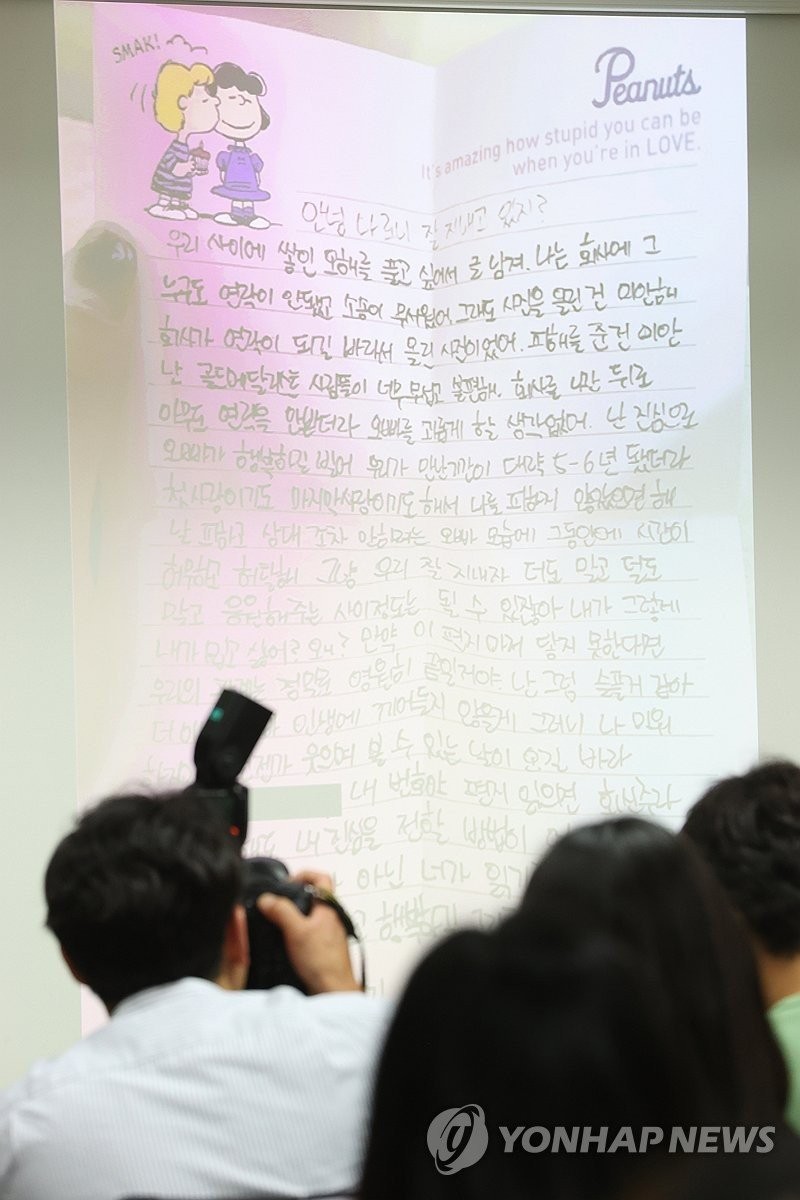 SMAK!
Peanuts
It's amazing how stupid you can be
when you're in LOVE.
안녕 나르니 잘 지내고 있지?
우리 사이에 쌓인 오해를 풀고 싶어서 글 남겨. 나는 회사에 그
누구도 연락이 안됐고 소송이 무서웠어. 그래도 시간을 물린건 미안해
회사가 연락이 되길 바라서 물린 시간이었어. 피해를 준건 미안
난 골드메달리스트 사람들이 너무 무섭고 불편해. 회사를 나간 뒤로
아무도 연락을 안받더라 오빠를 괴롭게 할 생각없어. 난 진심으로
오빠가 행복하길 빌어 우리가 만난기간이 대략 5-6년 됐더라
첫사랑이기도 마지막사랑이기도 해서 나를 피하지 않았으면 해
날 피하고 상대조차 안하려는 오빠 모습에 그동안에 시간이
허무하고 허탈해 그냥 우리 잘 지내자 더도 말고 덜도
말고 응원해주는 사이정도는 될 수 있잖아 내가 그렇게
내가 밉고 싫어? 왜? 만약 이 편지마저 닿지 못한다면
우리의 관계는 정말로 영원히 끝일거야. 난 그럼 슬플거 같아
더 인생에 끼어들지 않을게 그러니 나 미워
웃으며 볼 수 있는 날이 오길 바라
내 번호야 편지 읽으면 회보주라
내 진심을 전할 방법이
아닌 너가 읽기
행복
YONHAP NEWS